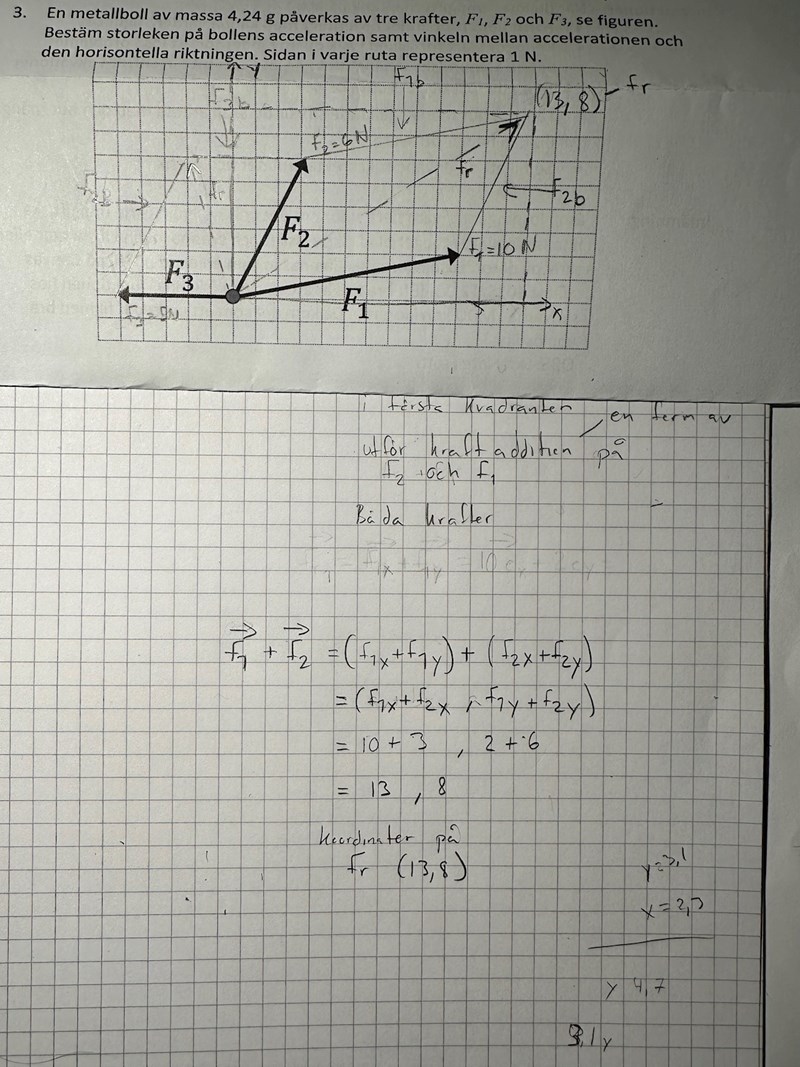 3. En metallboll av massa 4,24 g påverkas av tre krafter, F₁, F₂ och F₃, se figuren.
Bestäm storleken på bollens acceleration samt vinkeln mellan accelerationen och
den horisontella riktningen. Sidan i varje ruta representera 1 N.
y
F1b
fr
F3b
(13, 8)
f2=6N
fr
F2b
F₂
f1=10 N
F₃
F₁
x
F3=5N
i första kvadranten
en form av
utför kraft addition på
f2 och f1
Båda krafter
f1 + f2 = (f1x+f1y) + (f2x+f2y)
= (f1x+f2x , f1y+f2y)
= 10 + 3 , 2 + 6
= 13 , 8
koordinater på
fr (13,8)
y=3,1
x=2,3
y 4,7
3,1y